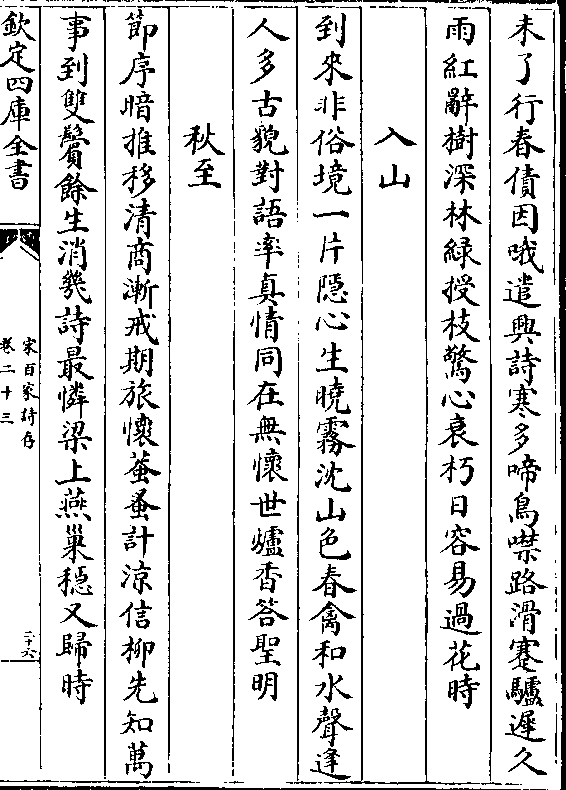 未了行春債因哦遣興詩寒多啼鳥噤路滑蹇驢遲久
雨紅辭樹深林綠授枝驚心衰朽日容易過花時
入山
到來非俗境一片隱心生曉霧沈山色春禽和水聲逢
人多古貌對語率真情同在無懷世爐香答聖明
秋至
節序暗推移清商漸戒期旅懷蛩蚤計涼信柳先知萬
事到雙鬢餘生消幾詩最憐梁上燕巢穩又歸時
欽定四庫全書
宋百家詩存
卷二十三
二十六